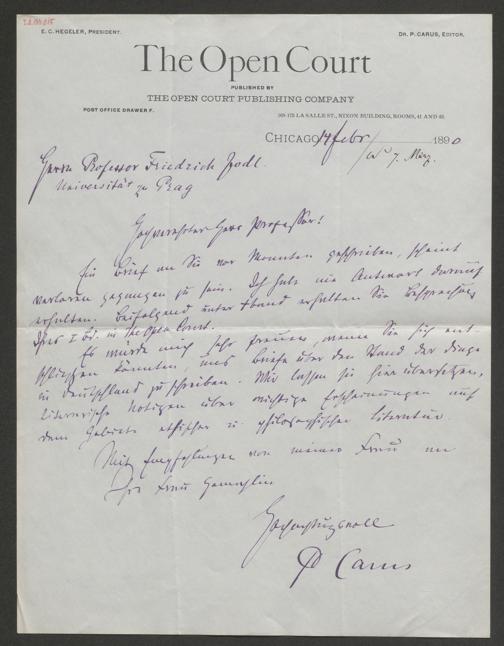 E. C. HEGELER, PRESIDENT.
DR. P. CARUS, EDITOR.
The Open Court
PUBLISHED BY
THE OPEN COURT PUBLISHING COMPANY
POST OFFICE DRAWER F.
169-175 LA SALLE ST., NIXON BUILDING, ROOMS, 41 AND 42.
CHICAGO 14 febr 1890
7. März.
Herrn Professor Friedrich Jodl
Universität zu Prag
Hochverehrter Herr Professor!
Ein Brief an Sie vor Monaten geschrieben, scheint
verloren gegangen zu sein. Ich habe nie Antwort darauf
erhalten. Beifolgend unter Band erhalten Sie Besprechung
Ihres I Bd. in The Open Court.
Es würde mich sehr freuen, wenn Sie sich ent-
schliessen könnten, uns Briefe über den Stand der Dinge
in Deutschland zu schreiben. Wir lassen sie hier übersetzen,
literarische Notizen über wichtige Erscheinungen auf
dem Gebiete ethischer u. philosophischer Literatur
Mit Empfehlungen von meiner Frau an
Ihre Frau Gemahlin
Hochachtungsvoll
P Carus